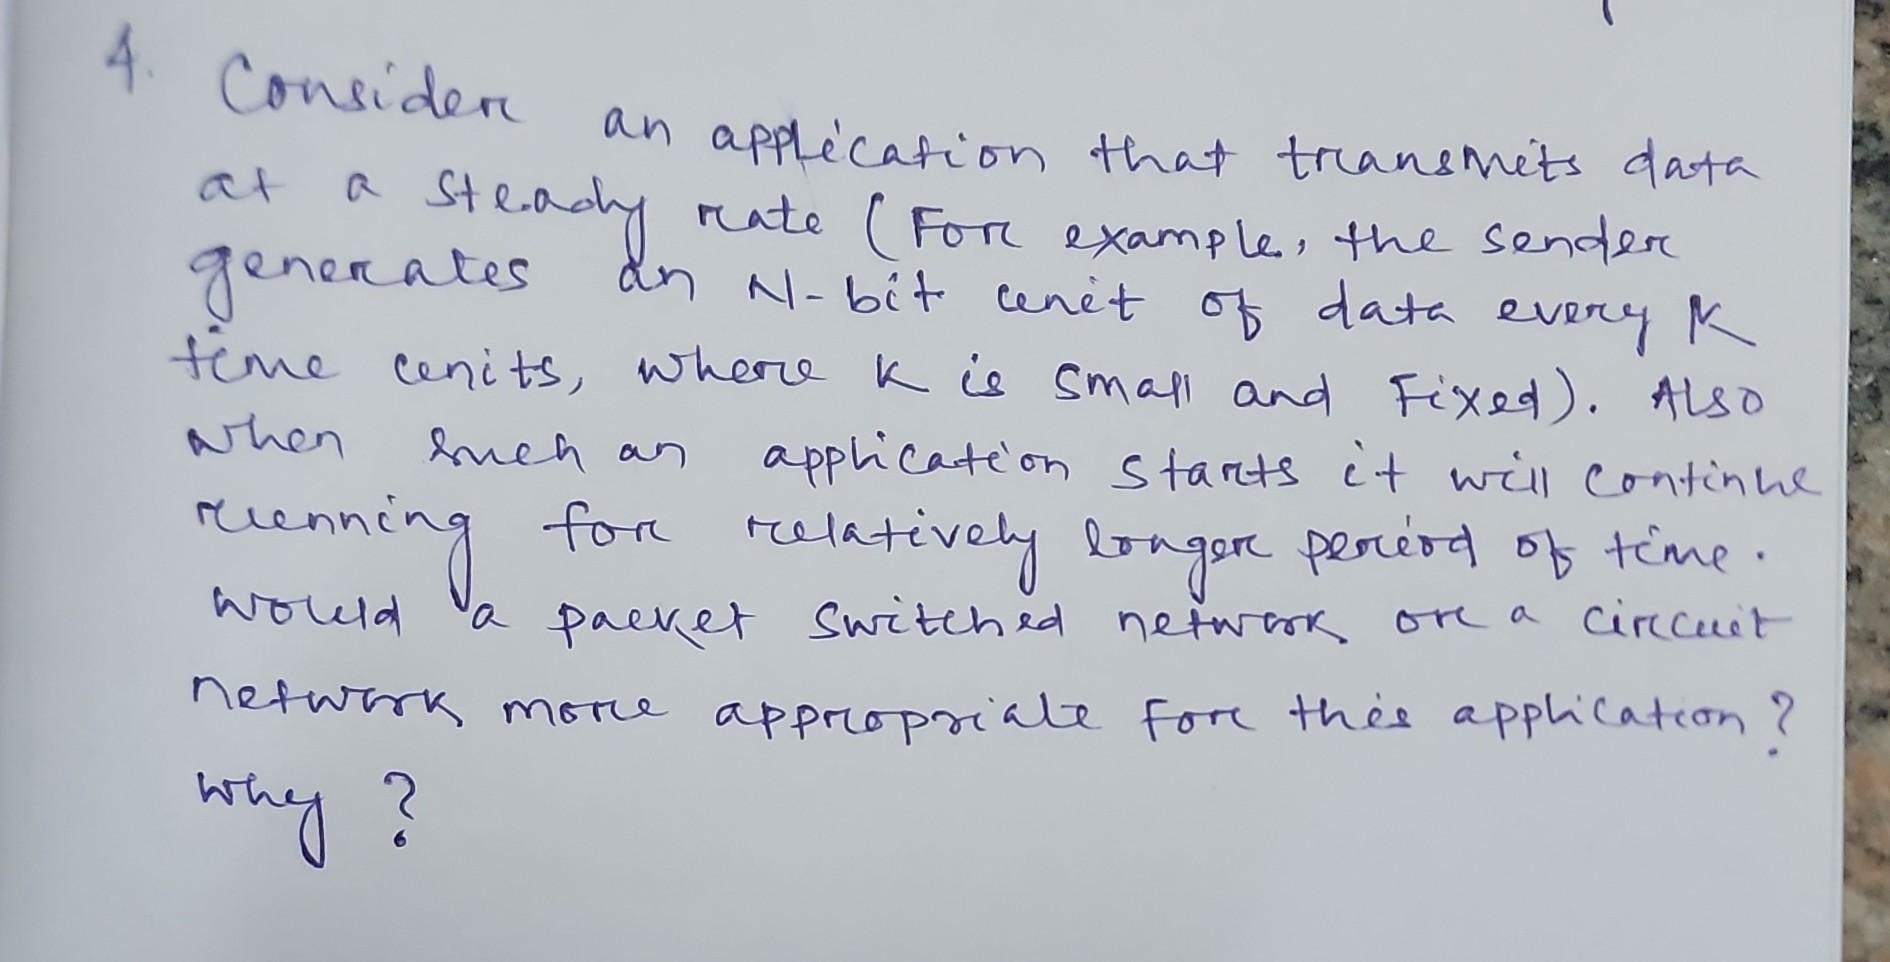 4. Consider an application that transmits data
at a steady rate (For example, the sender
generates an N-bit unit of data every K
time units, where K is small and Fixed). Also
when such an application starts it will continue
running for relatively longer period of time.
Would a packet switched network or a circuit
network more appropriate For this application?
Why?